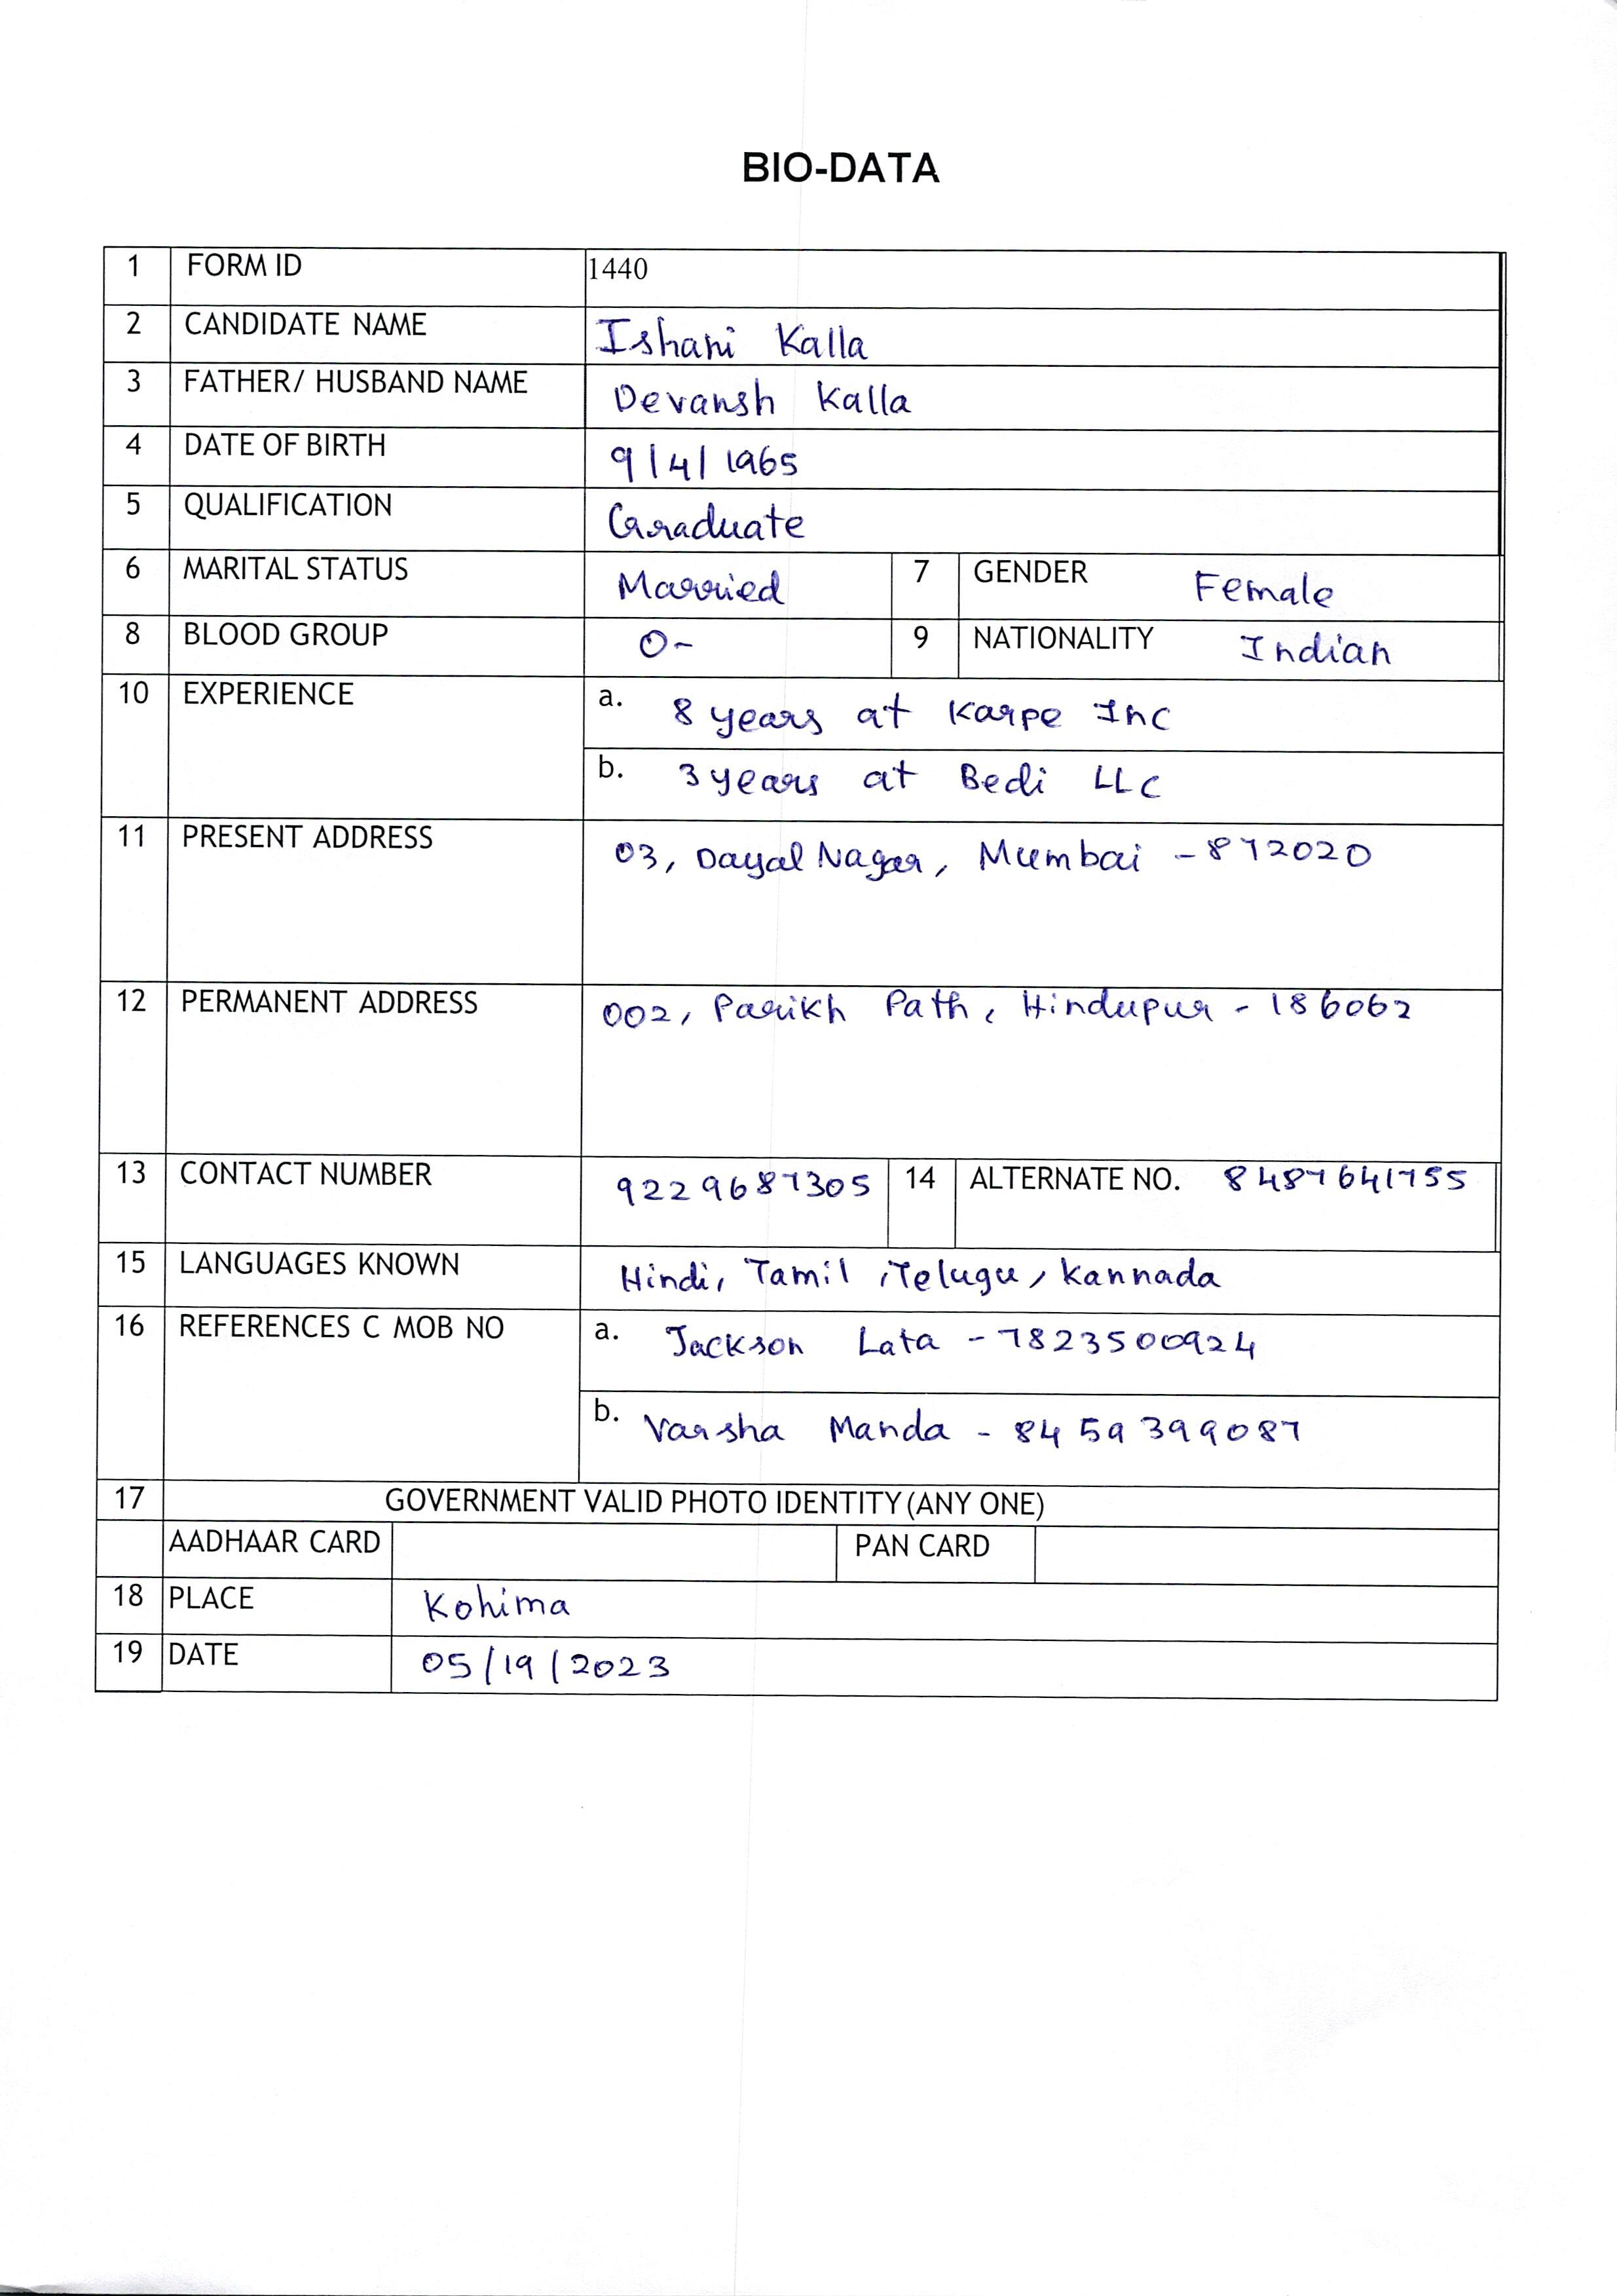 BIO-DATA
1 FORM ID 1440
2 CANDIDATE NAME Ishani Kalla
3 FATHER/ HUSBAND NAME Devansh Kalla
4 DATE OF BIRTH 9/4/1965
5 QUALIFICATION Graduate
6 MARITAL STATUS Married 7 GENDER Female
8 BLOOD GROUP O- 9 NATIONALITY Indian
10 EXPERIENCE a. 8 years at Karpe Inc
b. 3 years at Bedi LLC
11 PRESENT ADDRESS 03, Dayal Nagar, Mumbai - 872020
12 PERMANENT ADDRESS 002, Parikh Path, Hindupur - 186062
13 CONTACT NUMBER 9229687305 14 ALTERNATE NO. 8487641755
15 LANGUAGES KNOWN Hindi, Tamil, Telugu, Kannada
16 REFERENCES C MOB NO a. Jackson Lata - 7823500924
b. Varsha Manda - 8459399087
17 GOVERNMENT VALID PHOTO IDENTITY (ANY ONE)
AADHAAR CARD PAN CARD
18 PLACE Kohima
19 DATE 05/19/2023